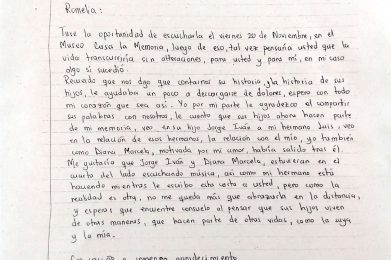 Romelia:
Tuve la oportunidad de escucharla el viernes 20 de Noviembre, en el
Museo Casa la Memoria, luego de eso, tal vez pensaría usted que la
vida transcurriría sin alteraciones, para usted y para mí, en mi caso
algo si sucedió.
Recuerdo que nos dijo que contarnos su historia, la historia de sus
hijos, le ayudaba un poco a descargarse de dolores, espero con todo
mi corazón que sea así. Yo por mi parte le agradezco el compartir
sus palabras con nosotros, le cuento que sus hijos ahora hacen parte
de mi memoria, veo en su hijo Jorge Iván a mi hermano Luis, veo
en la relación de esos hermanos, la relación con el mío, yo también
como Diana Marcela, motivada por mi amor, habría salido tras él.
Me gustaría que Jorge Iván y Diana Marcela, estuvieran en el
cuarto del lado escuchando música, así como mi hermano está
haciendo mientras le escribo esta carta a usted, pero como la
realidad es otra, no me queda más que abrazarla en la distancia,
y esperar que encuentre consuelo al pensar que sus hijos viven
de otras maneras, que hacen parte de otras vidas, como la suya
y la mía.